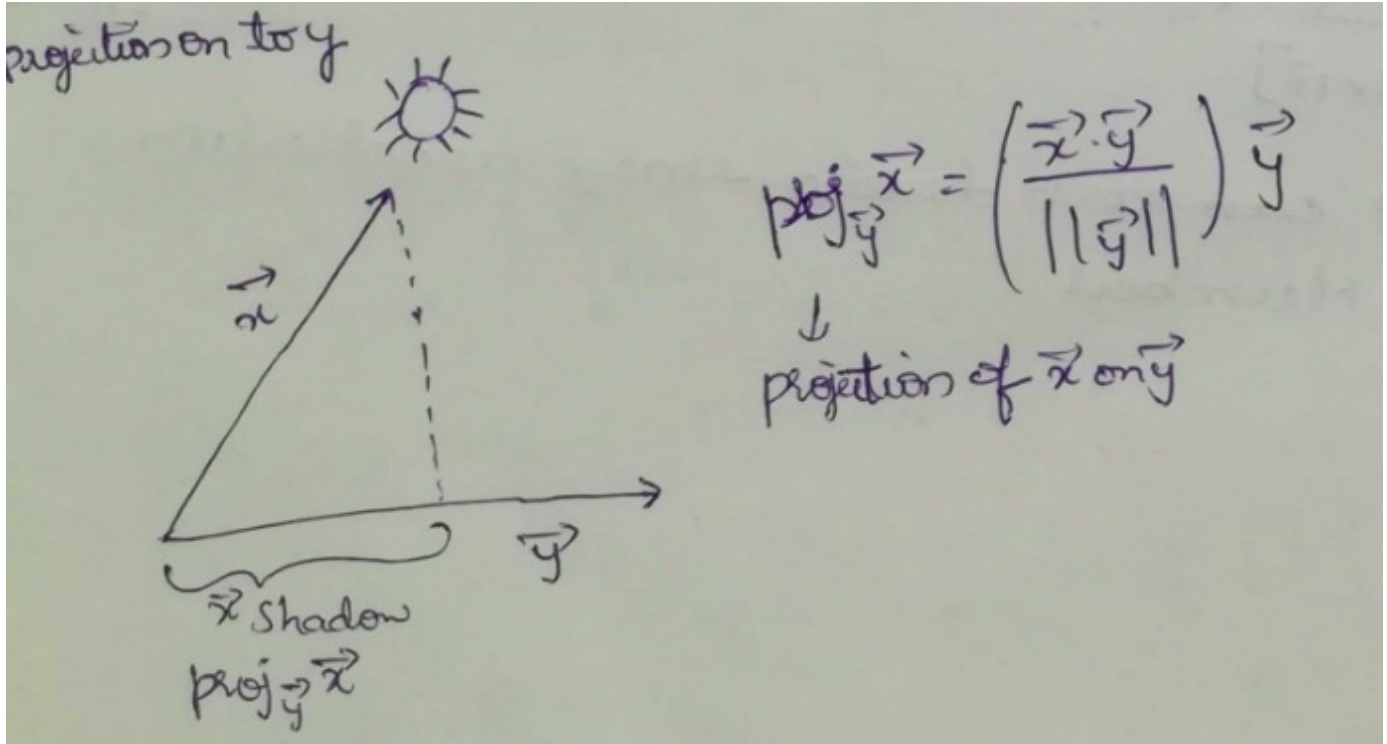 projection on to y
x⃗
y⃗
x⃗ shadow
proj_y⃗ x⃗
proj_y⃗ x⃗ = ( x⃗·y⃗ / ||y⃗|| ) y⃗
↓
projection of x⃗ on y⃗